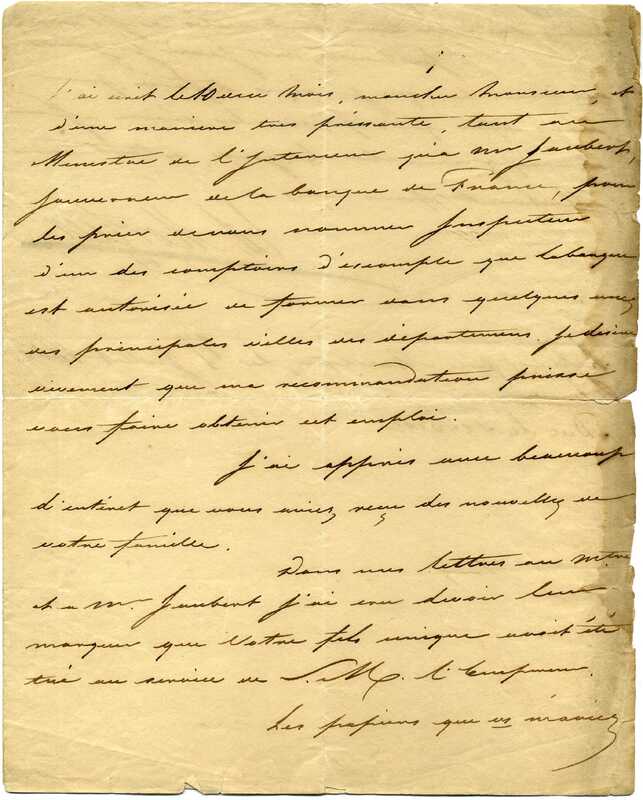 J'ai écrit le 10 de ce mois, mon cher Monsieur, et
d'une maniere tres préssante, tant au
Ministre de l'Interieur qu'a mr Jaubert
Gouverneur de la banque de France, pour
les prier de vous nommer Inspecteur
d'un des comptoirs d'escompte que la banque
est autorisée de former dans quelques unes
des principales villes des départemens. Je desire
vivement que ma recommandation puisse
vous faire obtenir cet emploi.
J'ai appris avec beaucoup
d'intéret que vous aviez reçu des nouvelles de
votre famille.
Dans mes lettres au m.tre
et a mr. Jaubert j'ai cru devoir leur
marquer que Votre fils unique avoit été
tué au service de S. M. l'Empereur.
Les papiers que vs m'aviez